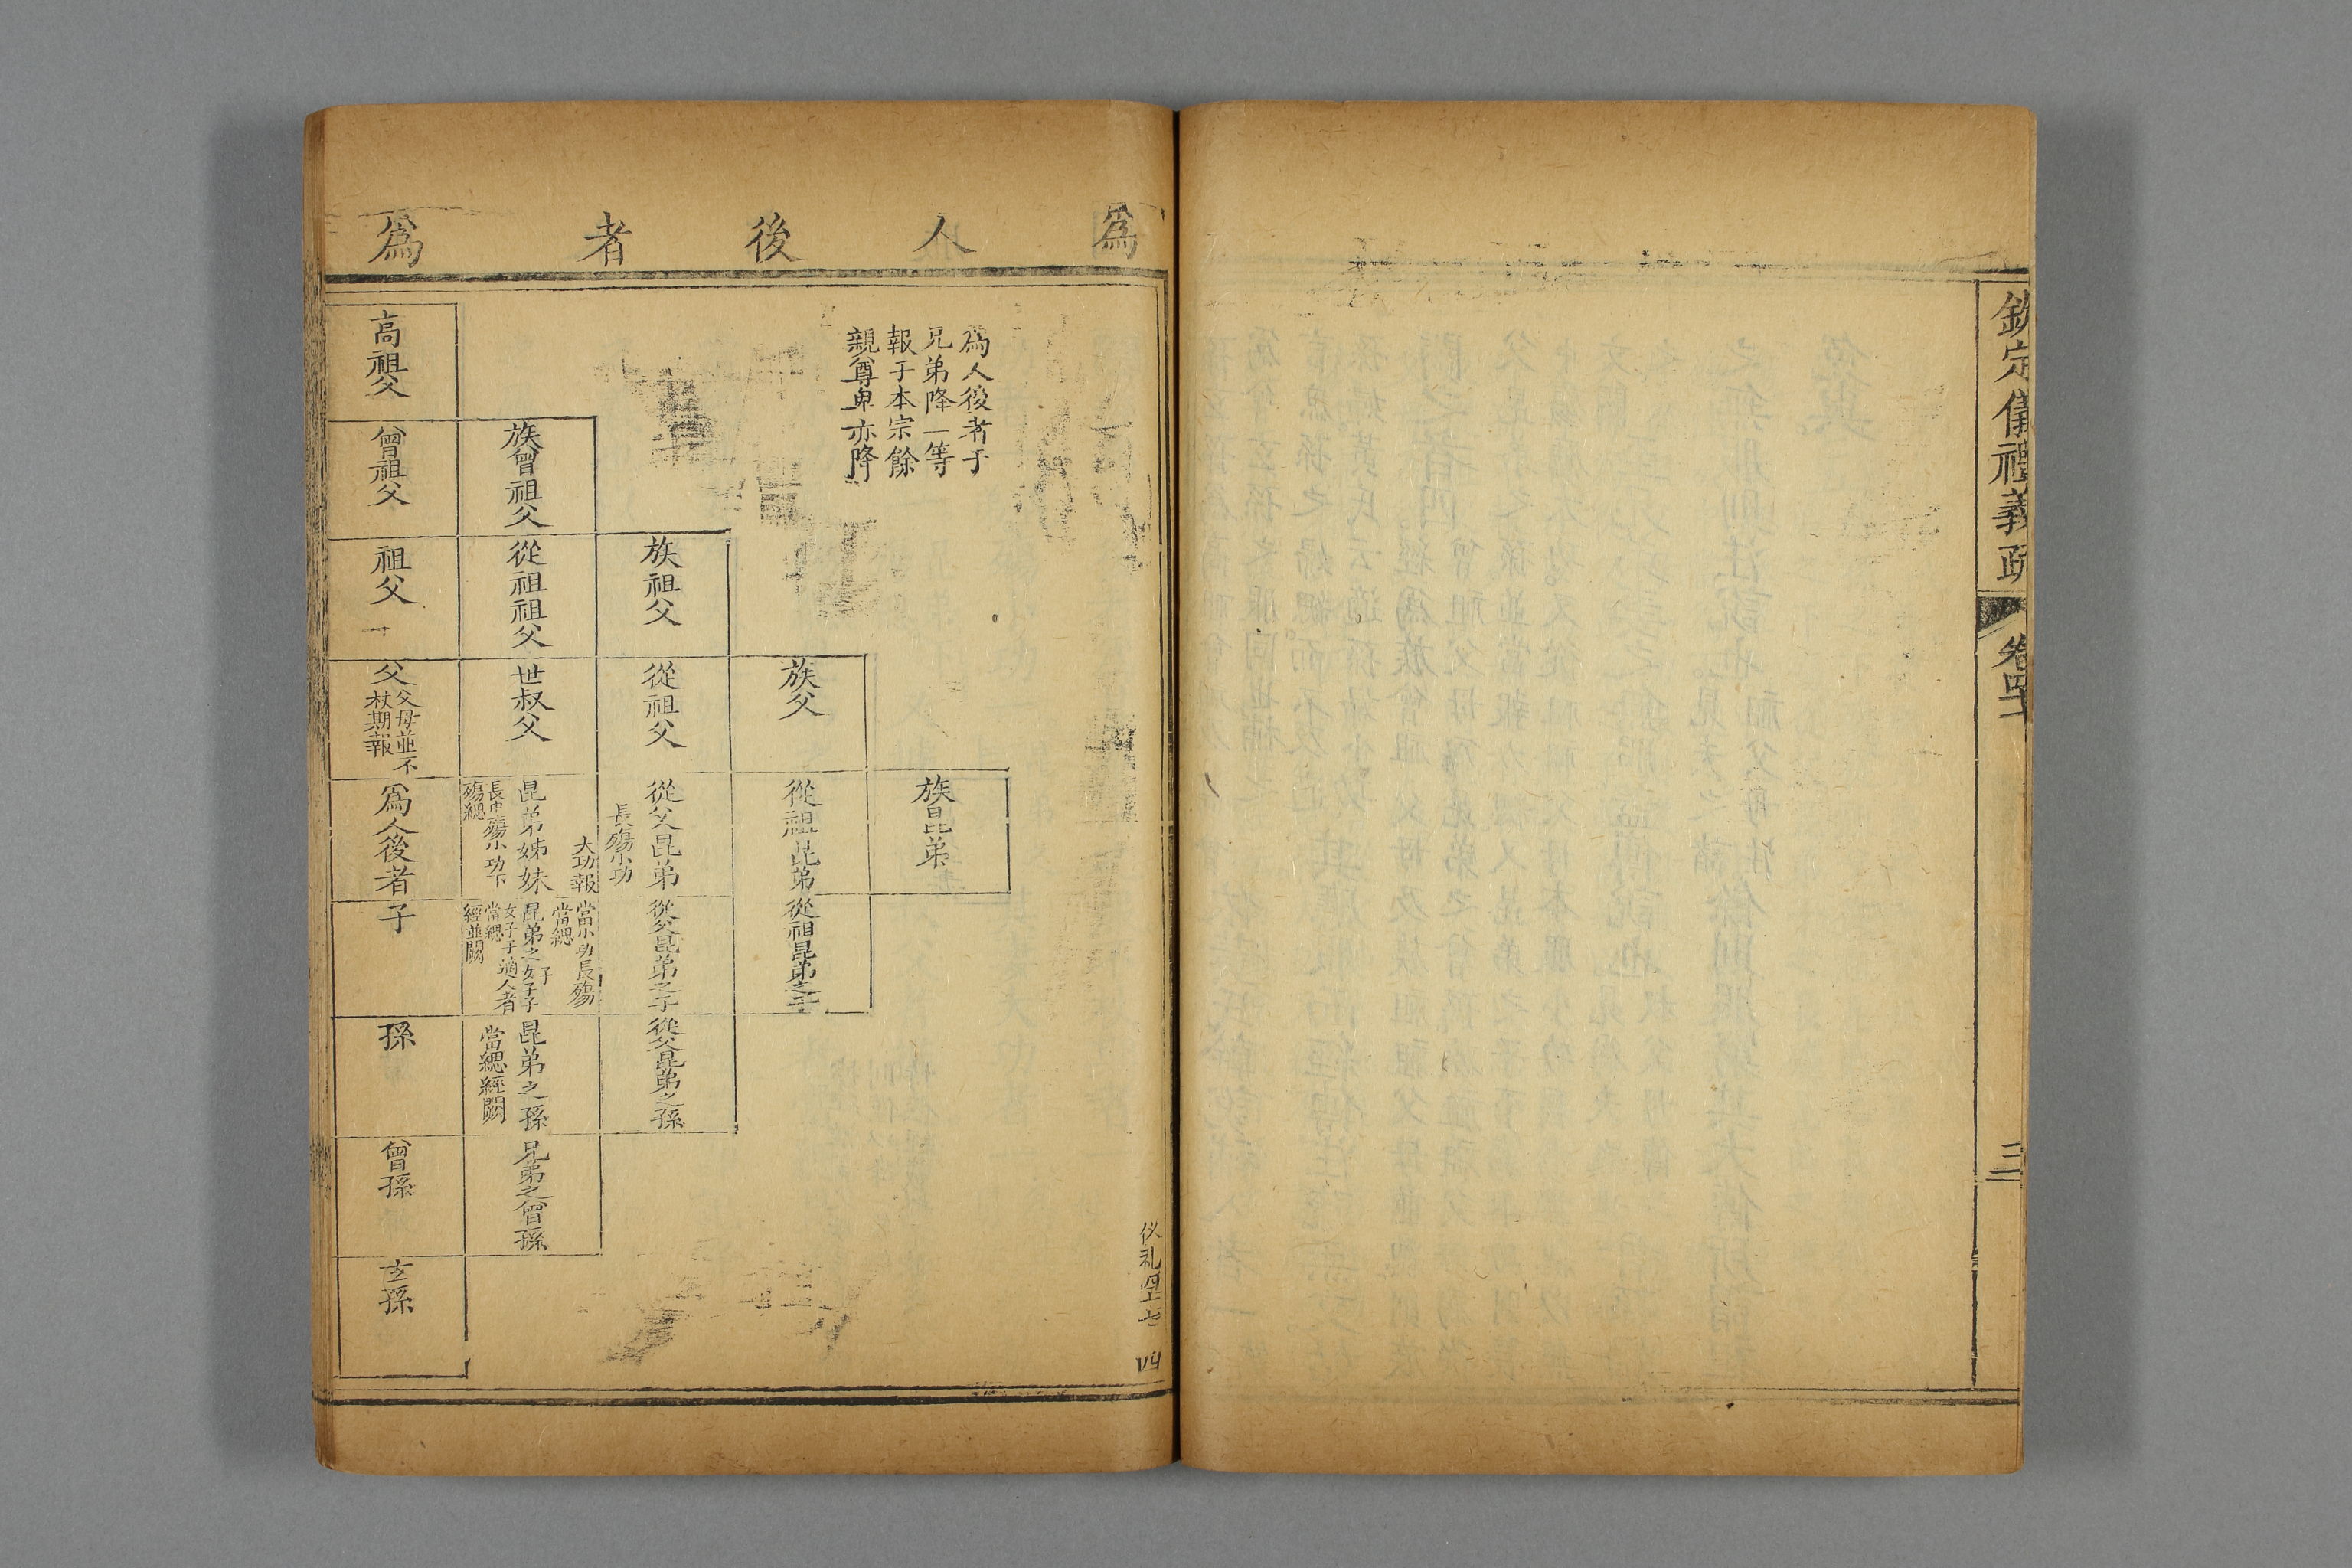 欽定儀禮義疏
卷四
三
爲人後者爲
爲人後者于
兄弟降一等
報于本宗餘
親尊卑亦降
仪礼
四
族昆弟
族父
從祖昆弟
從祖昆弟之子
族祖父
從祖父
從父昆弟
長殤小功
從父昆弟之子
從父昆弟之孫
族曾祖父
從祖祖父
世叔父
大功報
昆弟姊妹
長中殤小功下
殤緦
當小功長殤
當緦
昆弟之子女子子
女子子適人者
當緦
經並闕
昆弟之孫
當緦經闕
兄弟之曾孫
高祖父
曾祖父
祖父
父
父母並不
杖期報
爲人後者
子
孫
曾孫
玄孫